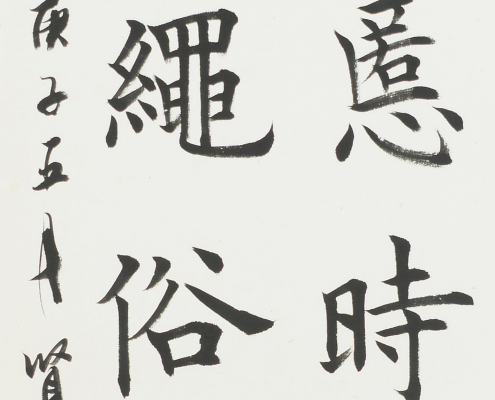 慝時
繩俗
庚子五月賢